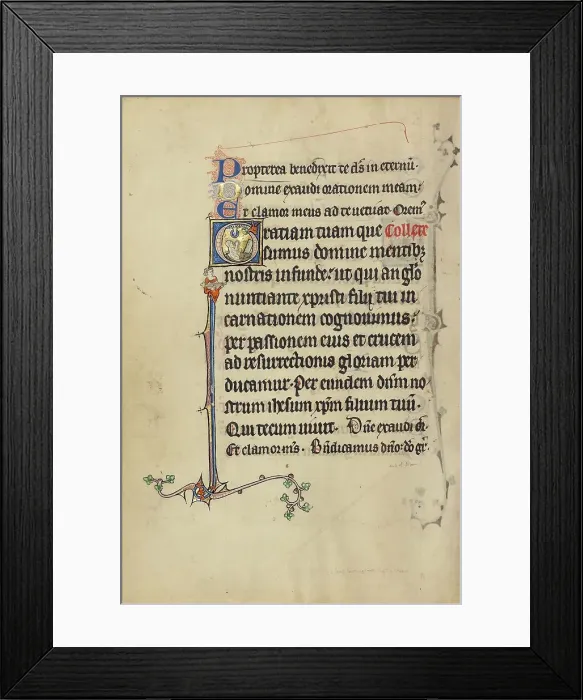 Propterea benedixit te ds in eternū.
Domine exaudi orationem meam.
Et clamor meus ad te ueniat. Orem⁹
Gratiam tuam que Collecte
sumus domine mentibꝫ
nostris infunde: ut qui anglo
nuntiante xpristi filij tui in
carnationem cognouimus:
per passionem eius et crucem
ad resurrectionis gloriam per
ducamur. Per eundem dn̄m no
strum ihesum xp̄m filium tuū.
Qui tecum uiuit. Dn̄e exaudi
Et clamor m̄s. Bn̄dicamus dn̄o: do gr̄.